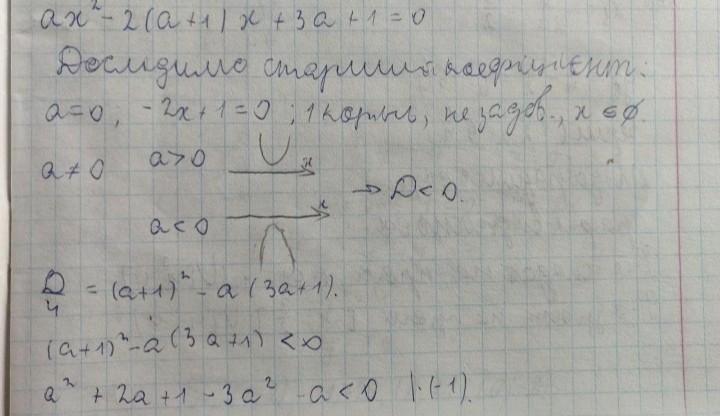 ax² - 2(a+1)x + 3a + 1 = 0
Дослідимо старший коефіцієнт:
a=0, -2x+1=0; 1 корінь, не задов., x ∈ ∅.
a≠0 a>0 x
→ D<0.
a<0 x
D/4 = (a+1)² - a(3a+1).
(a+1)² - a(3a+1) < 0
a² + 2a + 1 - 3a² - a < 0 |·(-1).